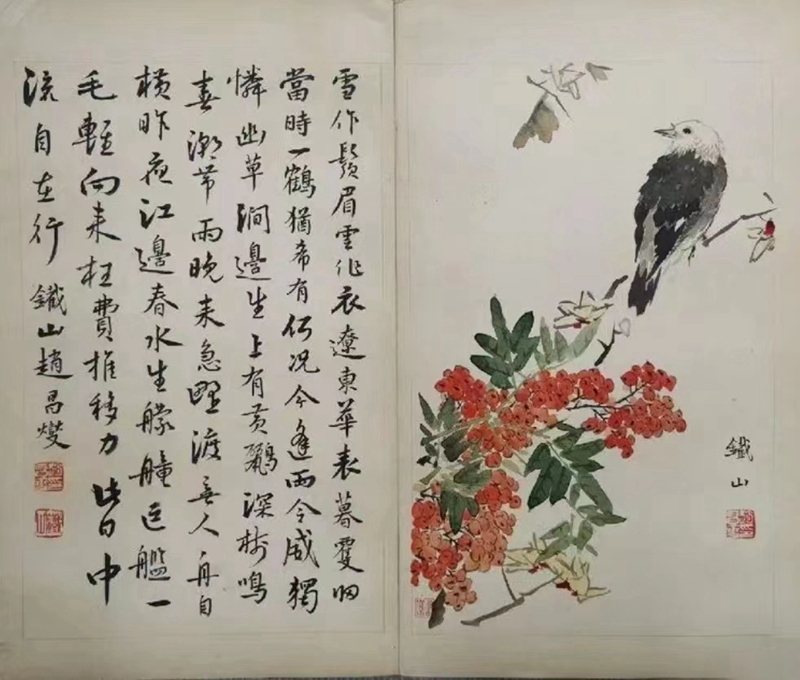 雪作鬚眉雲作衣遼東華表暮雙歸
當時一鶴猶希有何況今逢兩令威獨
憐幽草澗邊生上有黃鸝深樹鳴
春潮帶雨晚來急野渡無人舟自
橫昨夜江邊春水生艨艟巨艦一
毛輕向來枉費推移力此日中
流自在行 鐵山趙昌燮
鐵山